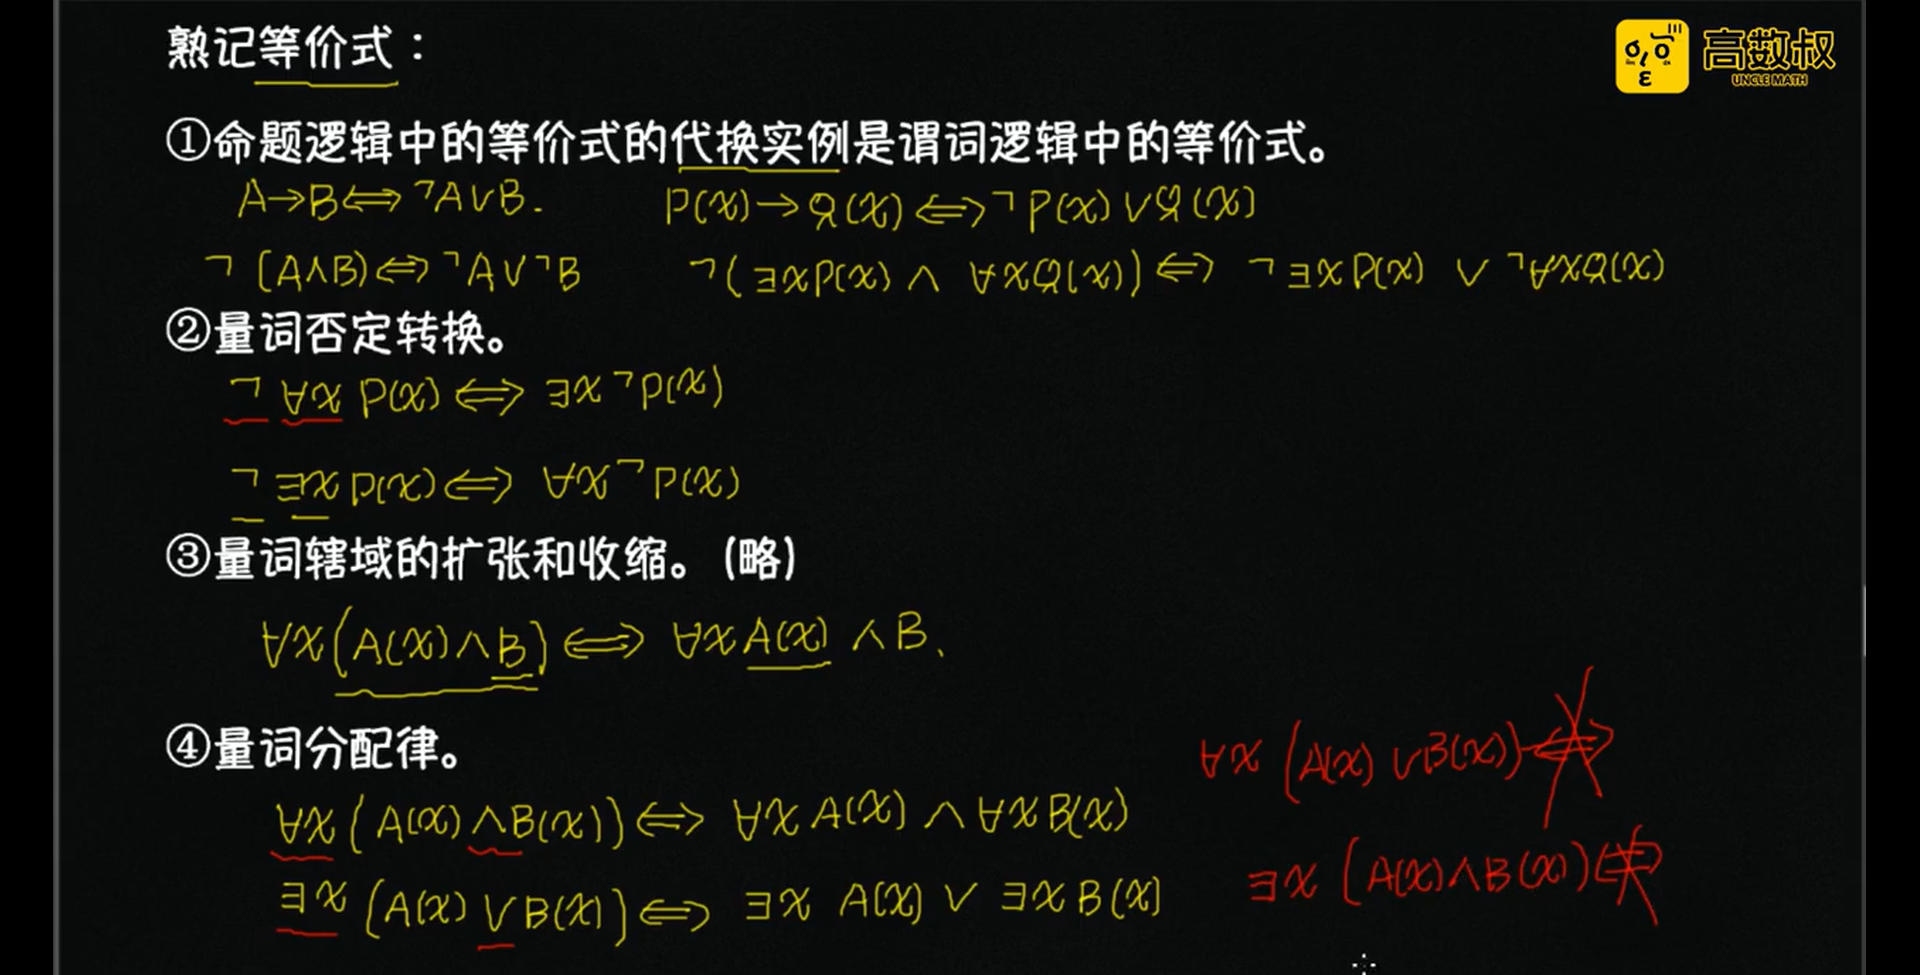 熟记等价式：
高数叔
UNCLE MATH
①命题逻辑中的等价式的代换实例是谓词逻辑中的等价式。
A→B⇔¬A∨B. P(x)→Q(x)⇔¬P(x)∨Q(x)
¬(A∧B)⇔¬A∨¬B ¬(∃xP(x)∧∀xQ(x))⇔¬∃xP(x)∨¬∀xQ(x)
②量词否定转换。
¬∀xP(x)⇔∃x¬P(x)
¬∃xP(x)⇔∀x¬P(x)
③量词辖域的扩张和收缩。(略)
∀x(A(x)∧B)⇔∀xA(x)∧B、
④量词分配律。
∀x(A(x)∨B(x))⇎
∀x(A(x)∧B(x))⇔∀xA(x)∧∀xB(x)
∃x(A(x)∧B(x))⇎
∃x(A(x)∨B(x))⇔∃xA(x)∨∃xB(x)